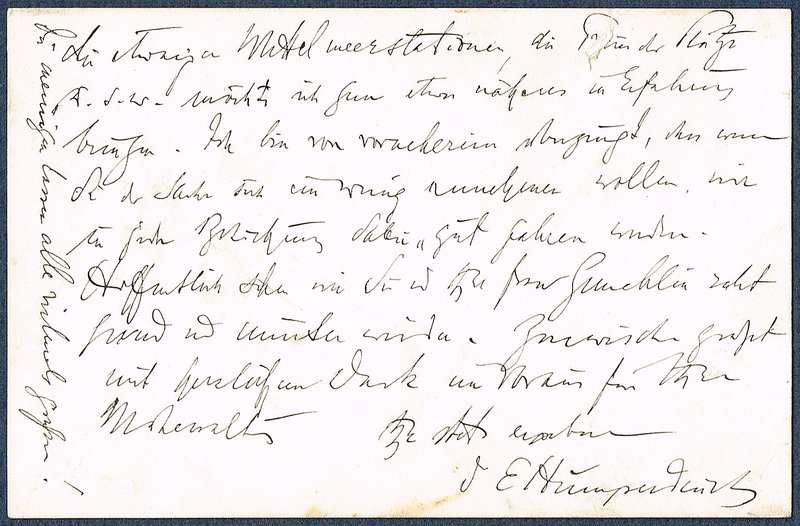 die etwaigen Mittelmeerstationen, die der Plätze
u. s. w. möchte ich gern etwas näheres in Erfahrung
bringen. Ich bin von vornherein überzeugt, dass wenn
Sie der Sache sich ein wenig annehmen wollen, wir
in jeder Beziehung dabei „gut fahren werden.
Hoffentlich sehen wir Sie und Ihre Frau Gemahlin recht
gesund und munter wieder. Inzwischen grüßt
mit herzlichem Dank im Voraus für Ihre
Mühewaltung
Ihr stets ergebener
EHumperdinck
Die meinigen lassen alle vielmals grüßen!